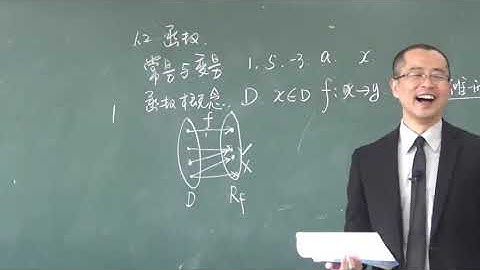 1.2 函数.
常量与变量 1. 5. -3. a. x
函数概念. D x∈D f: x→y 唯一
f
D Rf